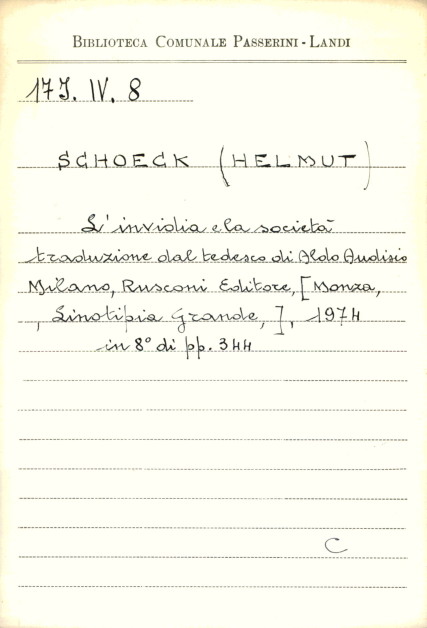 BIBLIOTECA COMUNALE PASSERINI - LANDI
17 J. IV. 8
SCHOECK (HELMUT)
L'invidia e la società
traduzione dal tedesco di Aldo Audisio
Milano, Rusconi Editore, [Monza,
, Linotipia Grande, ], 1974
in 8° di pp. 344
C